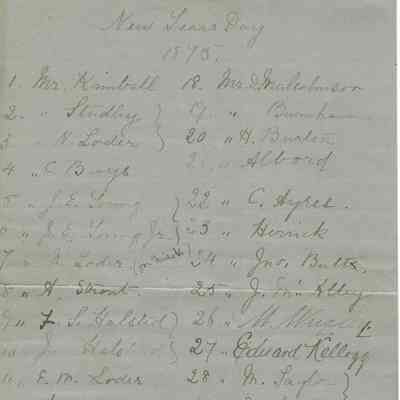 New Years Day
1875.
1. Mr. Kimball 18. Mr. D. Malcolmson
2. " Studley } 19 " Burnham
3 " N. Loder } 20 " H. Burton
4 " C. Buys 21 " Alvord
5 " J. E. Young } 22 " C. Ayres.
6 " J. E. Young Jr. } 23 " Herrick
7 " A. Loder 24 " Jno. Butts.
8 " A. Strout. 25 " J.
9 " F. S. Halsted } 26 " M.
10 " J. Halsted } 27 " Edward Kellogg
11 " E. M. Loder 28 " M. Taylor }